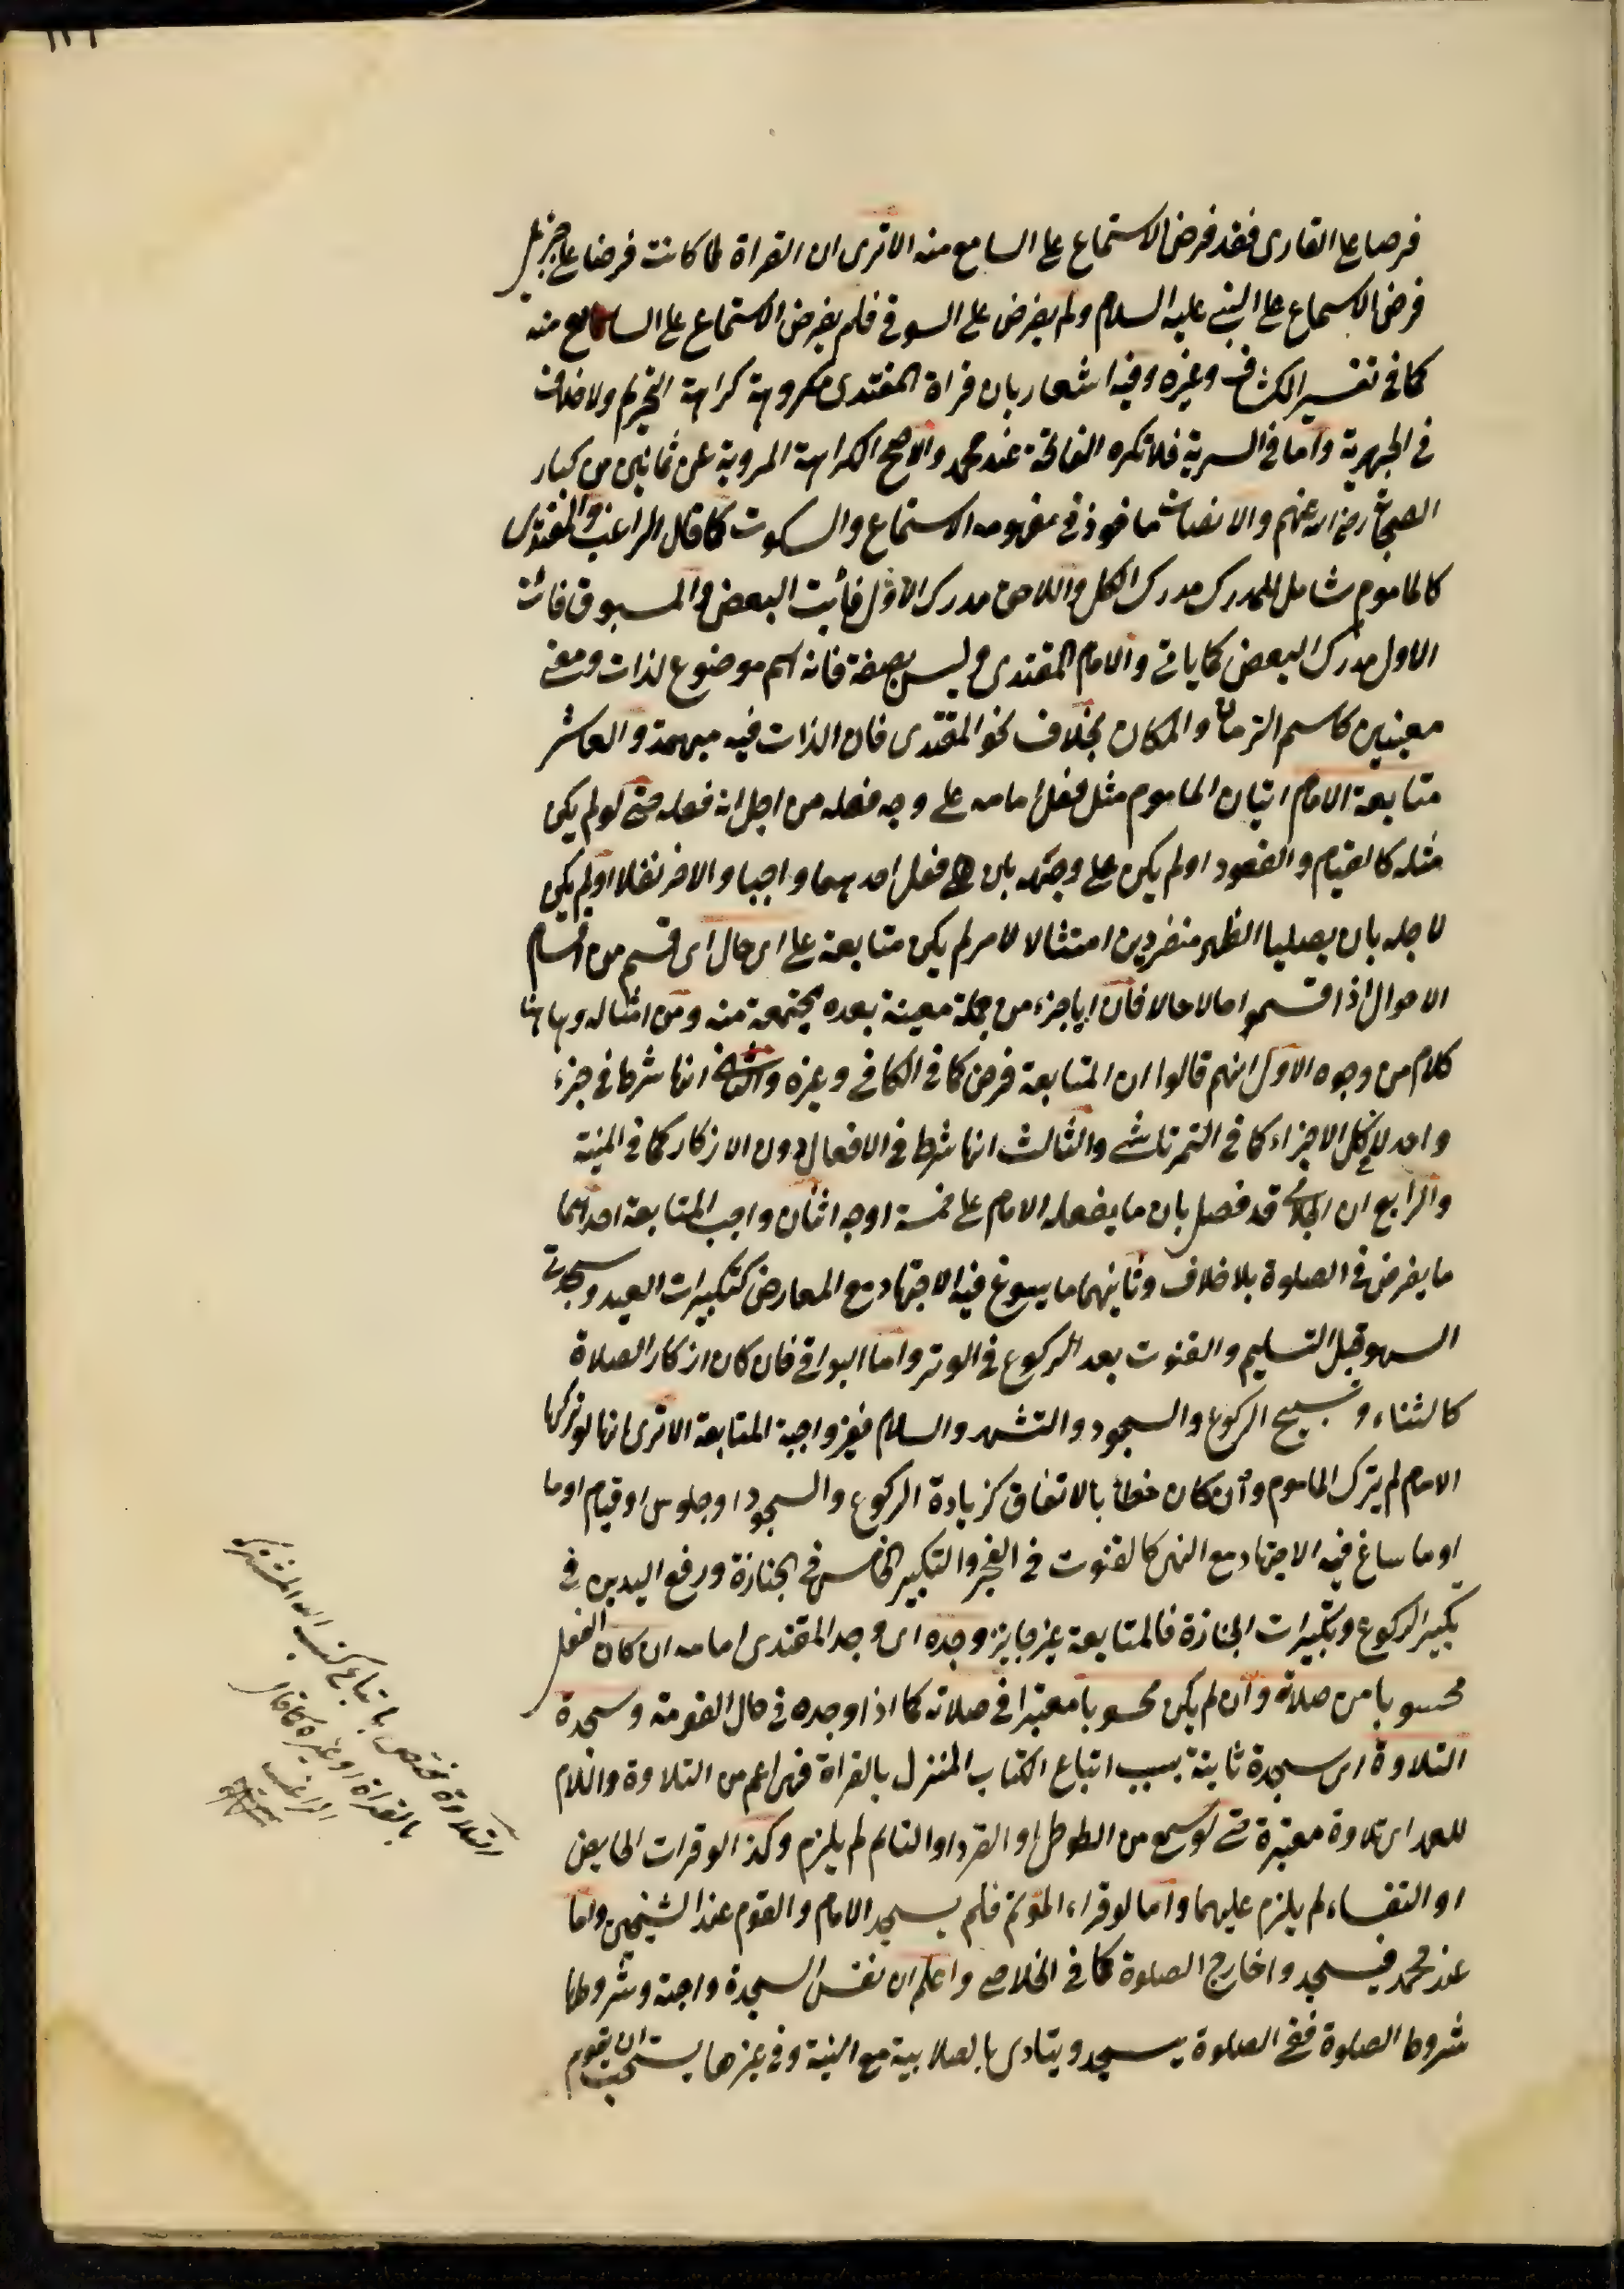 فرضا على القارى فقد فرض الاستماع على السامع منه الا ترى ان القراة لما كانت فرضا على جبرئيل
فرض الاسماع على النبى عليه السلام ولم يفرض على السوقى فلم يفرض الاستماع على السامع منه
كما فى تفسير الكشاف وغيره وفيه اشعار بان قراة المقتدى مكروهة كراهة التحريم ولا خلاف
فى الجهرية واما فى السرية فلا تكره الفاتحة عند محمد والاصح الكراهة المروية عن ثمانين من كبار
الصحابة رضى الله عنهم والانصات ماخوذ فى مفهومه الاستماع والسكوت كما قال الراغب والمقتدى
كالماموم شامل للمدرك مدرك الكل واللاحق مدرك الاول فائت البعض والمسبوق فائت
الاول مدرك البعض كما ياتى والامام المقتدى وليس بصفة فانه اسم موضوع لذات ومعنى
معينين كاسم الزمان والمكان بخلاف نحو المقتدى فان الذات فيه مبهمة والعاشر
متابعة الامام اتيان الماموم مثل فعل امامه على وجه فعله من اجل انه فعله حتى لو لم يكن
مثله كالقيام والقعود او لم يكن على وجهه بان فعل احدهما واجبا والاخر نفلا او لم يكن
لاجله بان يصليا الظهر منفردين امتثالا للامر لم يكن متابعة على اى حال اى قسم من اقسام
الاحوال اذا قسموا حالا حالا فان ايا جزء من جملة معينة بعده مجتمعة منه ومن امثاله وهاهنا
كلام من وجوه الاول انهم قالوا ان المتابعة فرض كما فى الكافى وغيره والثانى انها شرط فى جزء
واحد لا لكل الاجزاء كما فى التمرتاشى والثالث انها شرط فى الافعال دون الاذكار كما فى المنية
والرابع ان الجلابى قد فصل بان ما يفعله الامام على خمسة اوجه اثنان واجب المتابعة احدهما
ما يفرض فى الصلوة بلا خلاف وثانيهما ما يسوغ فيه الاجتهاد مع المعارض كتكبيرات العيد وسجدتى
السهو قبل التسليم والقنوت بعد الركوع فى الوتر واما البواقى فان كان اذكار الصلاة
كالثناء وتسبيح الركوع والسجود والتشهد والسلام فغير واجبة المتابعة الا ترى انها لو تركها
الامام لم يترك الماموم وان كان خطأ بالاتفاق كزيادة الركوع والسجود او جلوس او قيام اوما
اوما ساغ فيه الاجتهاد مع النهى كالقنوت فى الفجر والتكبير الخامس فى الجنازة ورفع اليدين فى
تكبير الركوع وتكبيرات الجنازة فالمتابعة غير جايز وجده اى وجد المقتدى امامه ان كان الفعل
محسوبا من صلاته وان لم يكن محسوبا معتبرا فى صلاته كما اذا وجده فى حال القومة وسجدة
التلاوة اى سجدة ثابتة بسبب اتباع الكتاب المنزل بالقراة فهى اعم من التلاوة واللام
للعهد اى تلاوة معتبرة حتى لو سمع من الطوطى او القرد او النائم لم يلزم وكذا لو قرات الحايض
او النفساء لم يلزم عليهما واما لو قراء المؤتم فلم يسجد الامام والقوم عند الشيخين واما
عند محمد فيسجدوا خارج الصلوة كما فى الخلاصه واعلم ان نفس السجدة واجبة وشروطها
شروط الصلوة ففى الصلوة يسجد ويتادى بالصلابية مع النية وفى غيرها يستحب ان يقوم
التلاوة مختص باتباع كتب الله المنزلة
بالقراة او غيره كما قال
الراغب